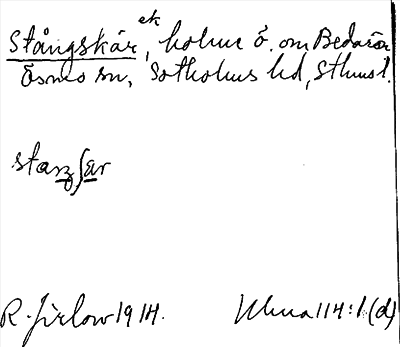 ek
Stångskär, holme ö. om Bedarön
Ösmo sn, Sotholms hd, Sthmsl.
R. Jirlow 1914.
114:1 (d)